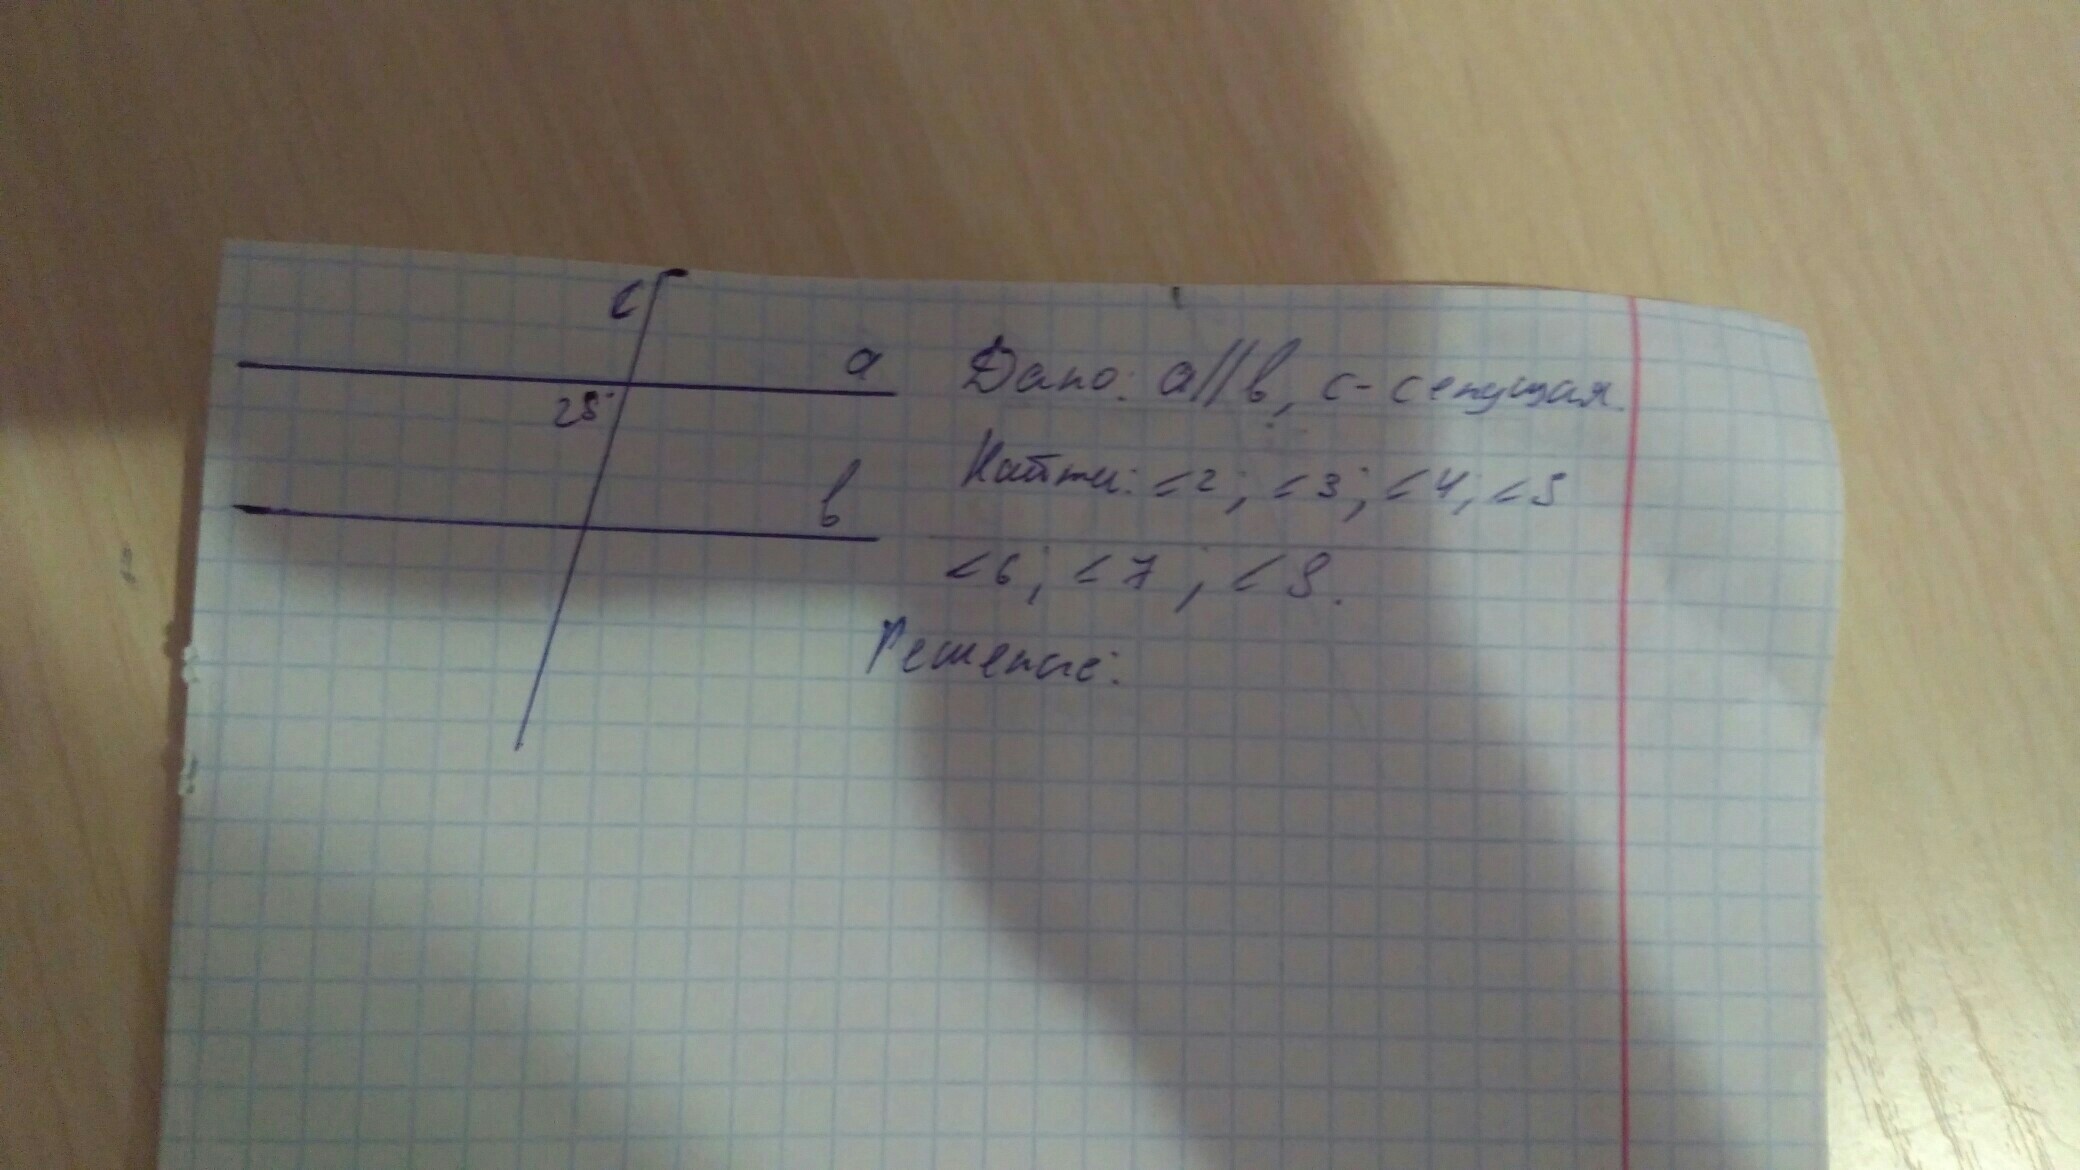 c
a
25°
b
Дано: a||b, c - секущая.
Найти: <2; <3; <4; <5
<6; <7; <8.
Решение: